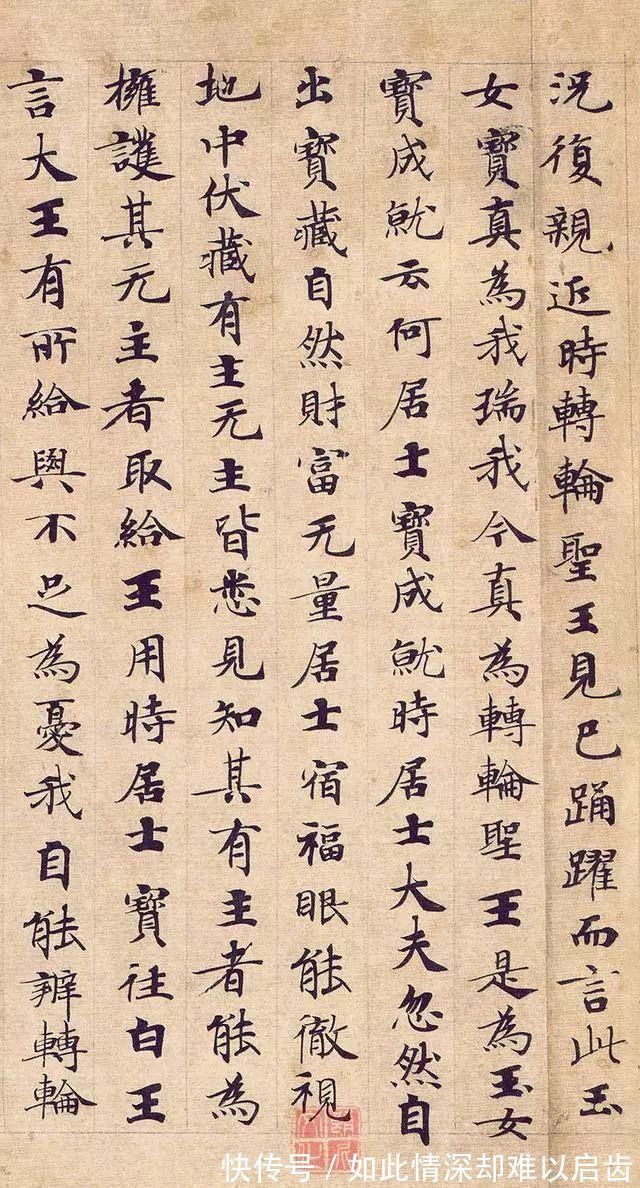 況復親近時轉輪聖王見已踊躍而言此玉
女寶真為我瑞我今真為轉輪聖王是為玉女
寶成就云何居士寶成就時居士大夫忽然自
出寶藏自然財富无量居士宿福眼能徹視
地中伏藏有主无主皆悉見知其有主者能為
擁護其无主者取給王用時居士寶往白王
言大王有所給與不足為憂我自能辦轉輪
快传号 / 如此情深却难以启齿